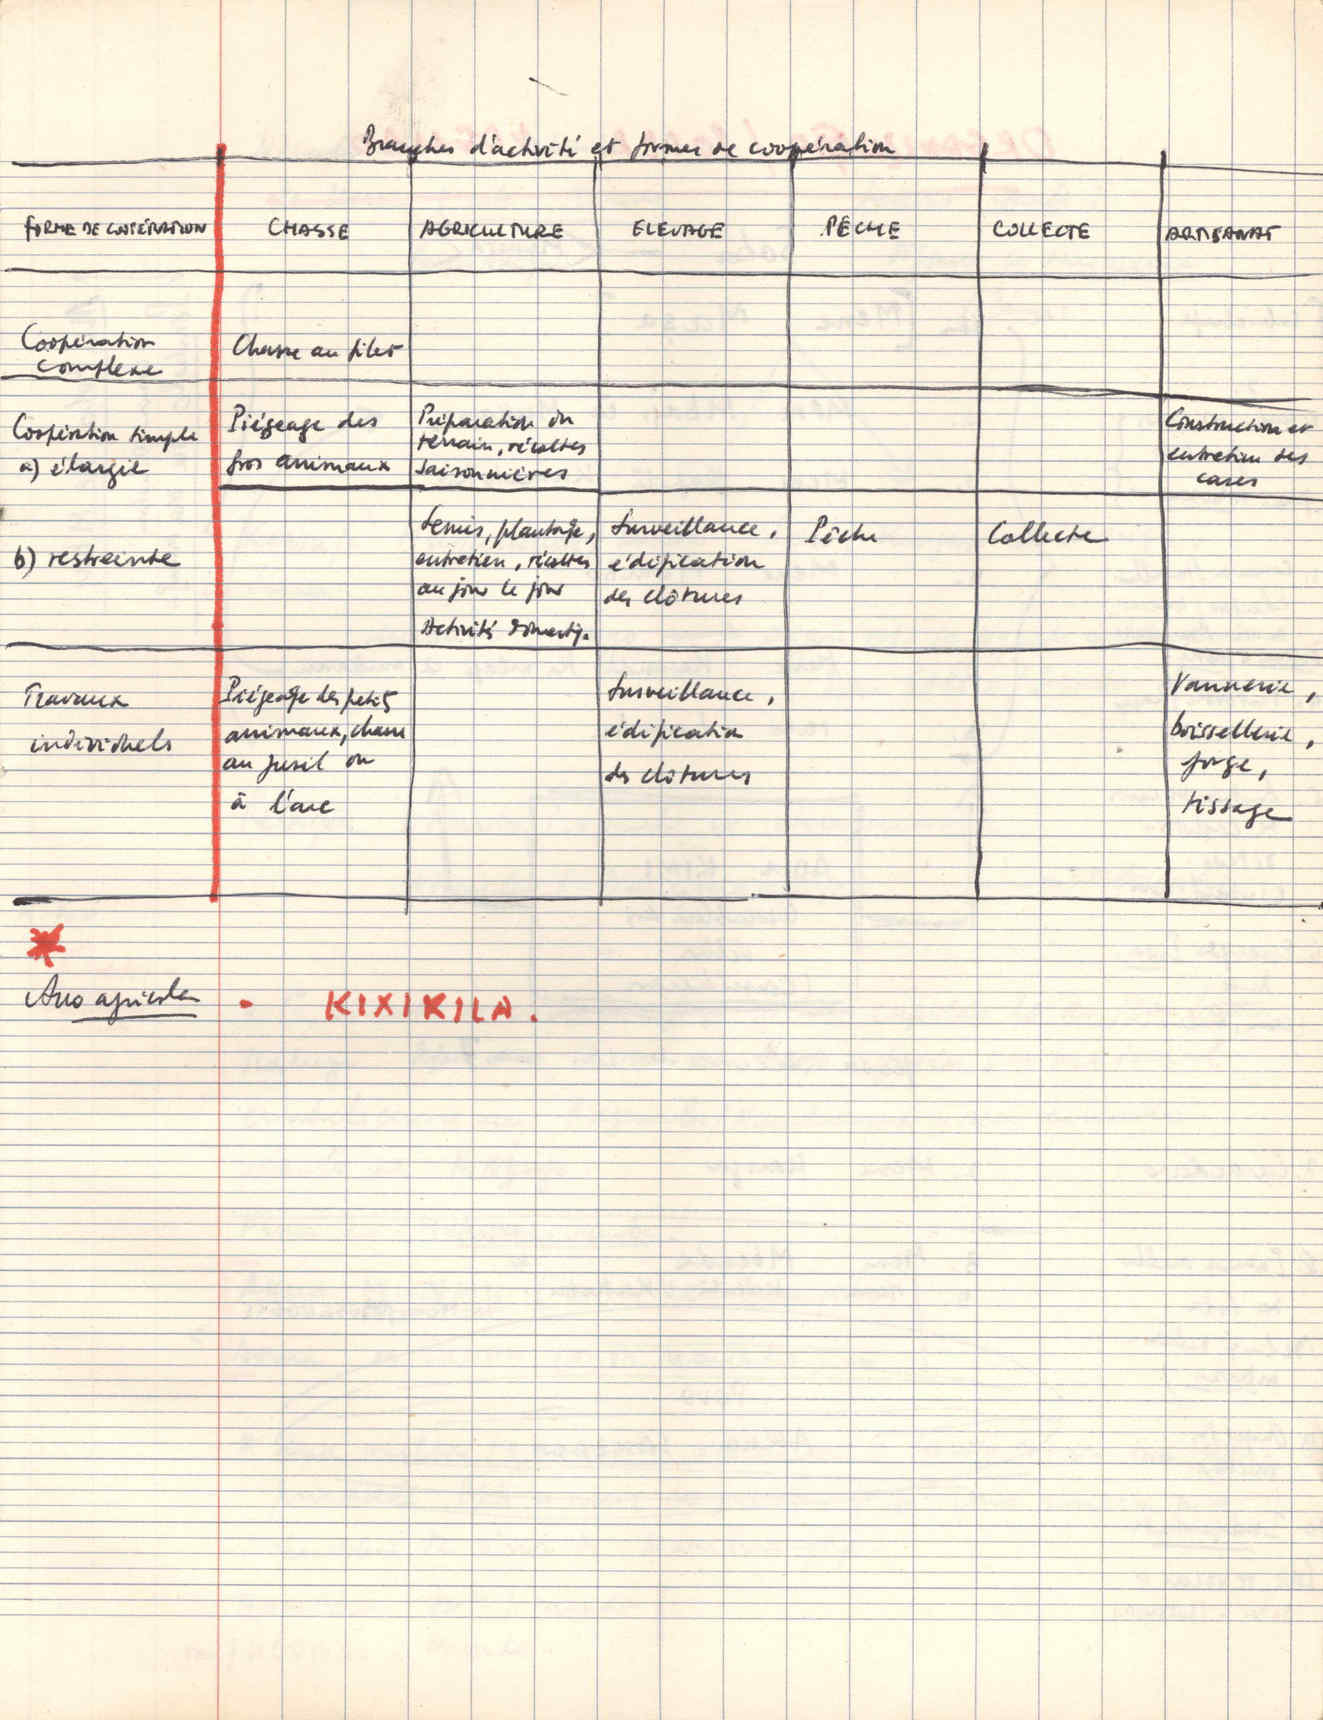 Branches d'activité et formes de coopération
FORME DE COOPÉRATION CHASSE AGRICULTURE ELEVAGE PÊCHE COLLECTE ARTISANAT
Coopération
complexe
Chasse au filet
Coopération simple
a) élargie
Piégeage des
gros animaux
Préparation du
terrain, récoltes
saisonnières
Construction et
entretien des
cases
b) restreinte
Semis, plantage,
entretien, récoltes
au jour le jour
Activités domestiq.
Surveillance,
édification
des clôtures
Pêche
Collecte
Travaux
individuels
Piégeage des petits
animaux, chasse
au fusil ou
à l'arc
Surveillance,
édification
des clôtures
Vannerie,
boissellerie,
forge,
tissage
Ano agrícola - KIXIKILA.